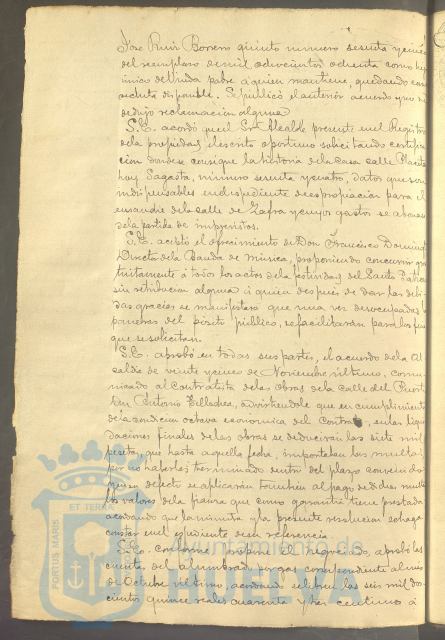 José Ruiz Borrero quinto numero sesenta y cinco
del reemplazo de mil ochocientos ochenta como hijo
único de viuda pobre á quien mantiene, quedando como
recluta disponible. Se publicó el anterior acuerdo y no se
dedujo reclamacion alguna.
S.E. acordó que el Sr. Alcalde presente en el Registro
de la propiedad el escrito oportuno solicitando certifica
cion donde se consigne la historia de la casa calle Placeta
hoy Sagasta, número sesenta y cuatro, datos que son
indispensables en el espediente de espropiacion para el
ensanche de la calle de Zafra y cuyos gastos se abonen
de la partida de imprevistos.
S.E. aceptó el ofrecimiento de Don Francisco Domingo
Director de la Banda de música, proponiendo concurrir gra
tuitamente á todos los actos de la festividad del Santo Patrono
sin retribucion alguna á quien despues de dar las debi
das gracias se manifestará que una vez desocupadas las
paneras del pósito público, se facilitarán para los fines
que se solicitan.
S.E. aprobó en todas sus partes, el acuerdo de la Al
caldia de veinte y cinco de Noviembre último, comu
nicado al Contratista de las obras de la calle del Puerto
Don Antonio advirtiendole que en cumplimiento
de la condicion octava economica del Contrato, en las liqui
daciones finales de las obras se deducirán las siete mil
pesetas, que hasta aquella fecha, importaban las multas
por no haberlas terminado dentro del plazo convenido
que en defecto se aplicarán tambien al pago de dichas multas
los valores de la fianza que como garantia tiene prestada
acordando que la minuta y la presente resolucion se haga
constar en el espediente de su referencia.
S.E. conforme propone el negociado, aprobó la
cuenta del alumbrado por gas correspondiente al mes
de Octubre último, acordando se libren las seis mil dos
cientos quince reales cuarenta y tres centimos á
Ayuntamiento de
HUELVA
PORTUS MARIS
ET TERRAE